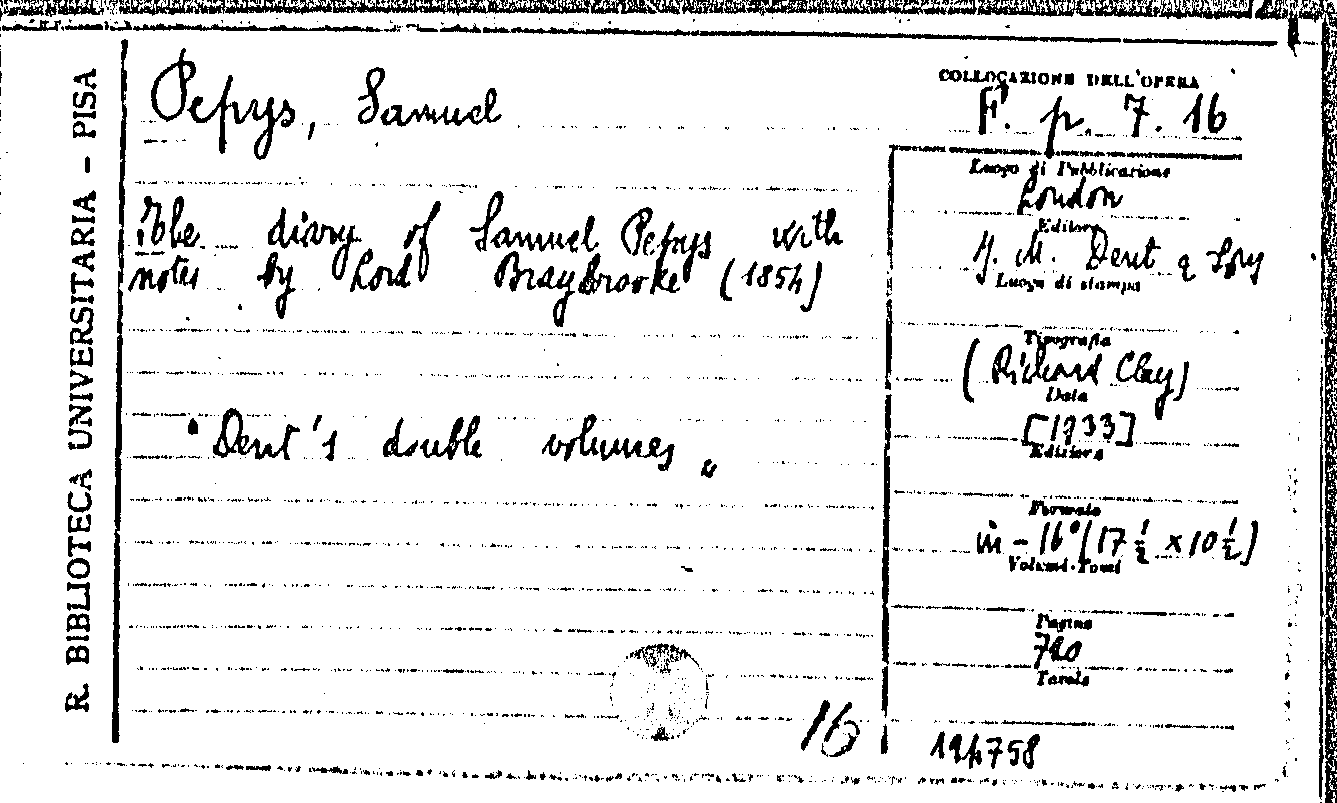 R. BIBLIOTECA UNIVERSITARIA - PISA
Pepys, Samuel
The diary of Samuel Pepys with
notes by Lord Braybrooke (1854)
"Dent's double volumes"
16
COLLOCAZIONE DELL'OPERA
F. p. 7. 16
Luogo di Pubblicazione
London
Editore
J. M. Dent & Sons
Luogo di stampa
Tipografia
(Richard Clay)
Data
[1933]
Edizione
Formato
in-16° (17 ½ x 10 ½)
Volumi-Tomi
Pagine
720
Tavole